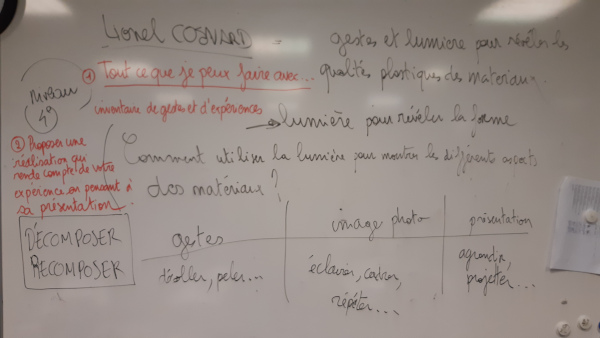 Lionel COSNARD
gestes et lumière pour révéler les
qualités plastiques des matériaux.
niveau
4e
1 Tout ce que je peux faire avec...
inventaire de gestes et d'expériences
→ lumière pour révéler la forme
2 Proposer une
réalisation qui
rende compte de votre
expérience en pensant à
sa présentation
Comment utiliser la lumière pour montrer les différents aspects
des matériaux?
DÉCOMPOSER
RECOMPOSER
gestes
image photo
présentation
décoller, peler...
éclairer, cadrer,
répéter...
agrandir,
projeter...